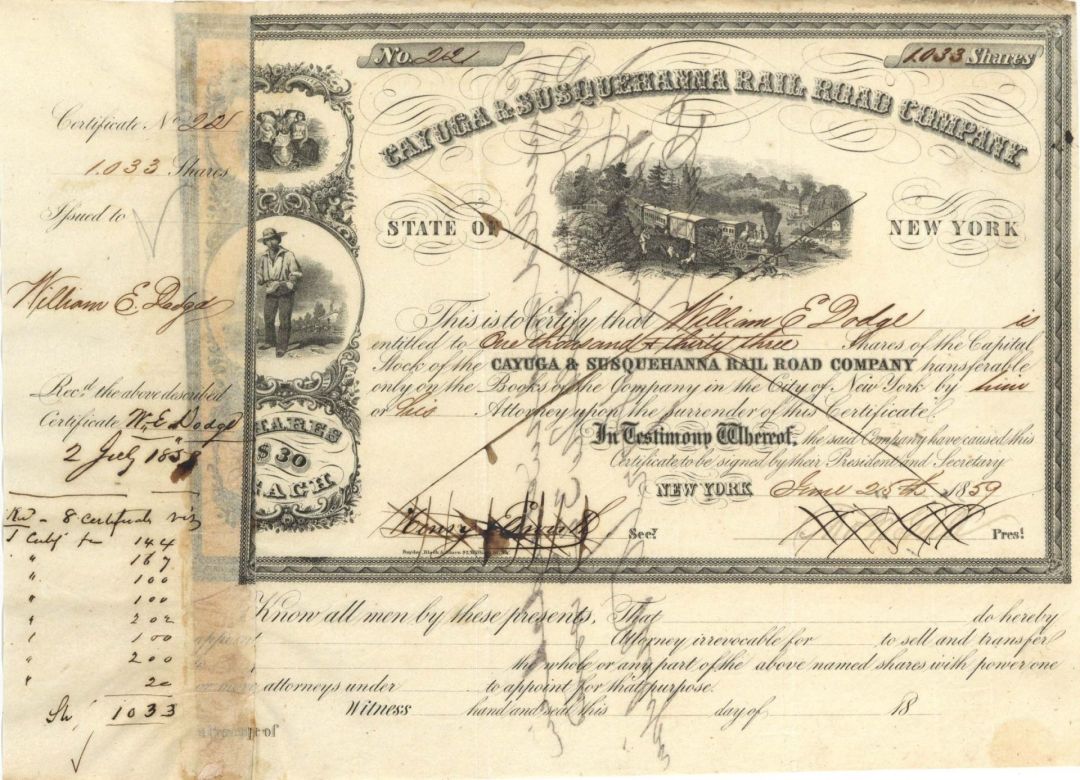 Certificate No 221
1.033 Shares
Issued to
William E. Dodge
Recd. the above described
Certificate W. E. Dodge
2 July 1859
8 Certificates viz
1 Certf for 144
" 167
" 100
" 100
" 202
" 100
" 200
" 20
1033
SHARES
$30
EACH
No. 221
1.033 Shares
CAYUGA & SUSQUEHANNA RAIL ROAD COMPANY
STATE OF NEW YORK
This is to Certify that William E Dodge is
entitled to One thousand & thirty three Shares of the Capital
Stock of the CAYUGA & SUSQUEHANNA RAIL ROAD COMPANY transferable
only on the Books of the Company in the City of New York by him
or his Attorney upon the surrender of this Certificate.
In Testimony Whereof, the said Company have caused this
Certificate to be signed by their President and Secretary
NEW YORK June 25th 1859
Secy. Prest.
Know all men by these presents, That do hereby
appoint Attorney irrevocable for to sell and transfer
the whole or any part of the above named shares with power one
or more attorneys under to appoint for that purpose.
Witness hand and seal this day of 18